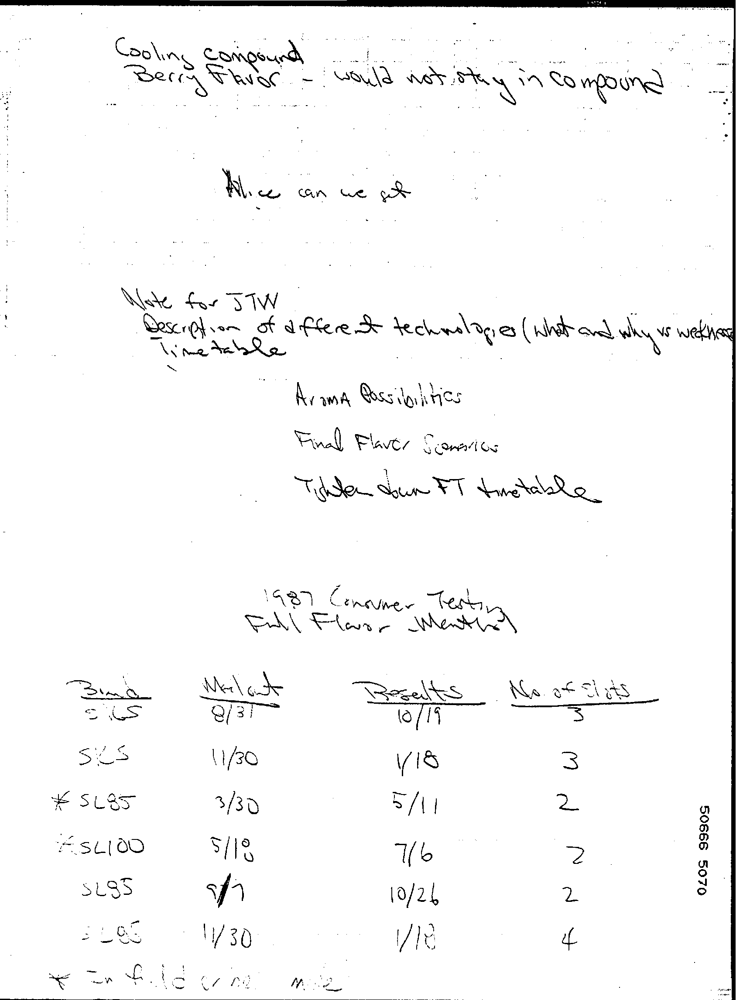 Cooling compound
Berry Flavor - would not stay in compound
Alice can we get
Note for JTW
Description of different technologies (what and why vs weakness
Timetable
Aroma Possibilities
Final Flavor Scenarios
Tighten down FT timetable
1987 Consumer Testing
Full Flavor Menthol
Brand Mailout Results No of Slots
8/31 10/19 3
SKS 11/30 1/18 3
* SL85 3/30 5/11 2
* SL100 5/18 7/6 2
SL85 9/7 10/26 2
SL85 11/30 1/18 4
* In field
50666 5070